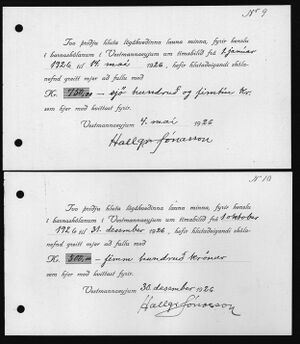 No 9
Tvo þriðju hluta lögákveðinna launa minna, fyrir kenslu
í barnaskólanum í Vestmannaeyjum um tímabilið frá 1 janúar
1926 til 14. maí 1926, hefir hlutaðeigandi skóla-
nefnd greitt mér að fullu með
Kr. 750,00 — sjö hundruð og fimtíu kr.
sem hjer með kvittast fyrir.
Vestmannaeyjum 4. maí 1926
Hallgr Jónasson
No 10
Tvo þriðju hluta lögákveðinna launa minna, fyrir kenslu
í barnaskólanum í Vestmannaeyjum um tímabilið frá 1 október
1926 til 31. desember 1926, hefir hlutaðeigandi skóla-
nefnd greitt mér að fullu með
Kr. 500,00 — fimm hundruð krónur
sem hjer með kvittast fyrir.
Vestmannaeyjum 30. desember 1926
Hallgr. Jónasson